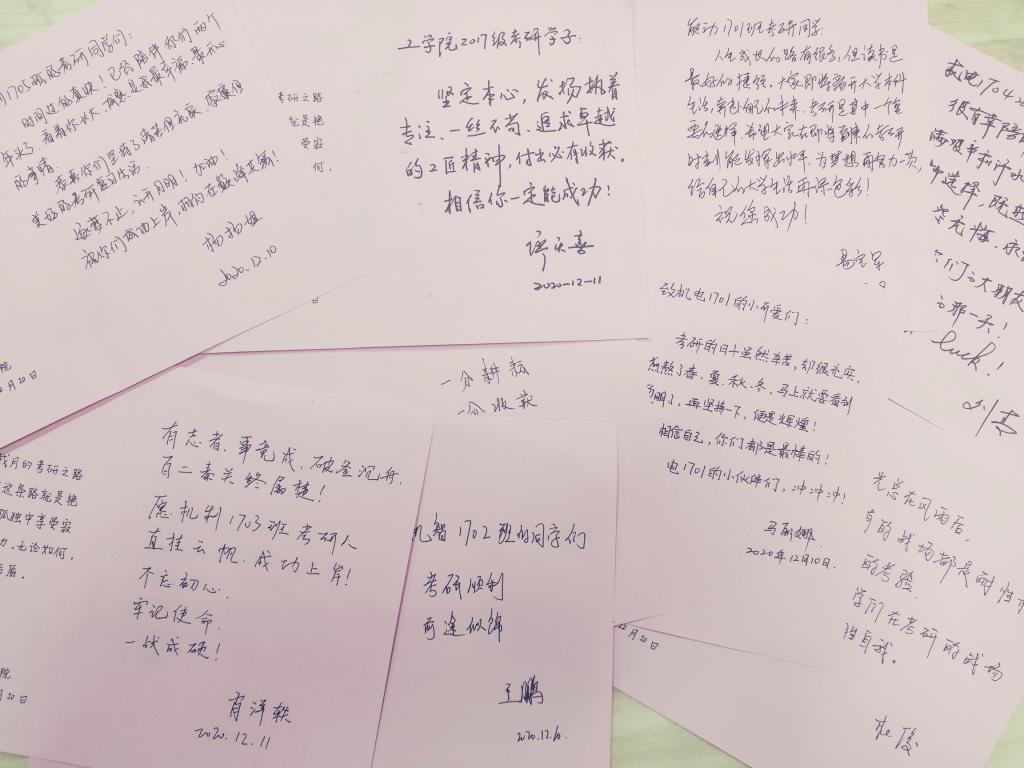 时间过的真快！已经陪伴你们两个
年头了，看着你长大，
美好的考研复习生活。
逐梦不止，
祝你们成功上岸，
杨杨姐
2020.12.10
考研之路
就是艳
受寂
何，
工学院2017级考研学子：
坚定本心，发扬执着
专注、一丝不苟、追求卓越
的工匠精神，付出必有收获。
相信你一定能成功！
2020-12-11
能动1701班考研同学：
人生成长的路有很多，但读书是
最好的捷径，大家即将离开大学本科
生活，奔向的未来，考研是其中一个重
要的选择，希望大家在即将到来的考研
时刻能发挥出水平，为梦想再努力一次，
给自己的大学生活再添色彩！
祝您成功！
机电1704
很有幸陪
中选择，既
们的大朋友
的那一天！
luck！
致机电1701的小可爱们：
考研的日子虽然辛苦，却很充实，
煎熬了春、夏、秋、冬，马上就要看到
再坚持一下，便是辉煌！
相信自己，你们都是最棒的！
电1701的小伙伴们，冲冲冲！
马丽娜
2020年12月10日.
一分耕耘
一分收获
院
12月20日
有志者，事竟成，破釜沉舟，
百二秦关终属楚！
愿机制1703班考研人
直挂云帆，成功上岸！
不忘初心，
牢记使命，
一战成硕！
肖洋轶
2020.12.11
机智1702班的同学们
考研顺利
前途似锦
王鹏
2020.12.10.
月的考研之路
这条路就是艳
孤独中享受寂
力，无论如何，
后盾。
院
月20日
12月20日
光总在风雨后，
有的战场都是耐性
的考验
学们在考研的战场
胜自我。
杜俊